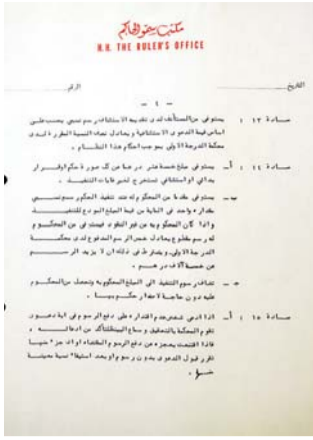 مكتب سمو الحاكم
H.H. THE RULER'S OFFICE
التاريخ الرقم
- ٤ -
مادة ١٣ : يستوفى من المستأنف لدى تقديمه الاستئناف رسم نسبي يحسب على
اساس قيمة الدعوى الاستئنافية ويعادل نصف النسبة المقررة لدى
محكمة الدرجة الاولى بموجب احكام هذا النظام .
مادة ١٤ : أ- يستوفى مبلغ خمسة عشر درهما عن كل صورة حكم او قرار
بدائي او استئنافي تستخرج لغير غايات التنفيذ .
ب- يستوفى مقدما من المحكوم له عند تنفيذ الحكم رسم نسبي
مقداره واحد في المائة من قيمة المبلغ المودع للتنفيذ
واذا كان المحكوم به من غير النقود فيستوفى من المحكوم
له رسم مقطوع يعادل خمس الرسم المدفوع لدى محكمة
الدرجة الاولى ويشترط في ذلك ان لا يزيد الرسم
عن خمسة آلاف درهم .
ج- تضاف رسوم التنفيذ الى المبلغ المحكوم به وتحصل من المحكوم
عليه دون حاجة لاصدار حكم بها .
مادة ١٥ : أ- اذا ادعى شخص عدم اقتداره على دفع الرسوم في اية دعوى
تقوم المحكمة بالتحقيق وسماع البينة للتأكد من ادعائه ،
فاذا اقتنعت بعجزه عن دفع الرسوم المقتضاه او اي جزء منها
تقرر قبول الدعوى بدون رسوم او بعد استيفاء نسبة معينة
منها .